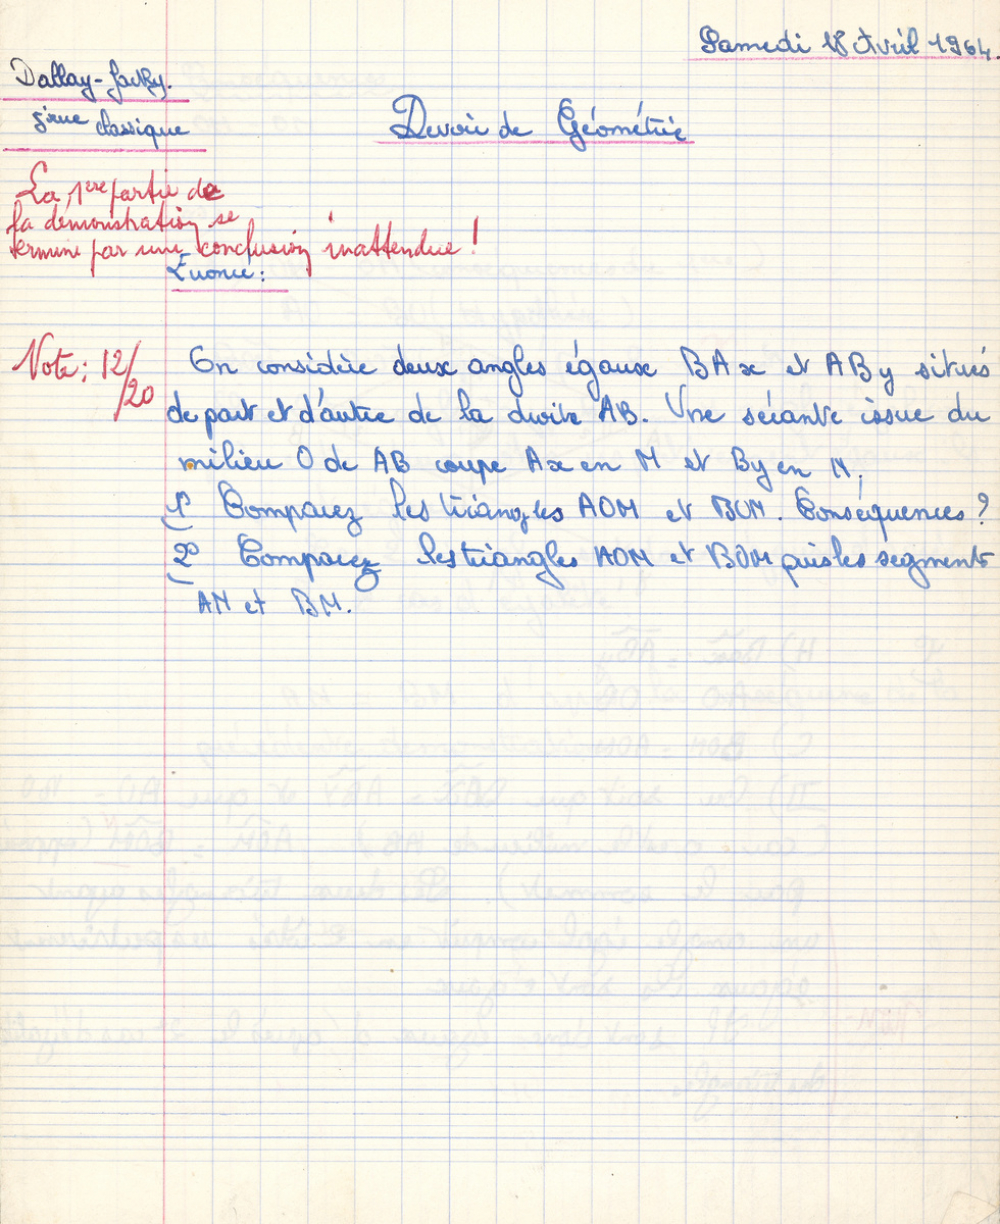 Samedi 18 Avril 1964.
Dallay-Jacky.
5ème classique
Devoir de Géométrie
La 1ère partie de
la démonstration se
termine par une conclusion inattendue !
Énoncé :
Note : 12/20
On considère deux angles égaux BAx et ABy situés
de part et d'autre de la droite AB. Une sécante issue du
milieu O de AB coupe Ax en M et By en N.
1° Comparez les triangles AOM et BON. Conséquences ?
2° Comparez les triangles AON et BOM puis les segments
AN et BM.